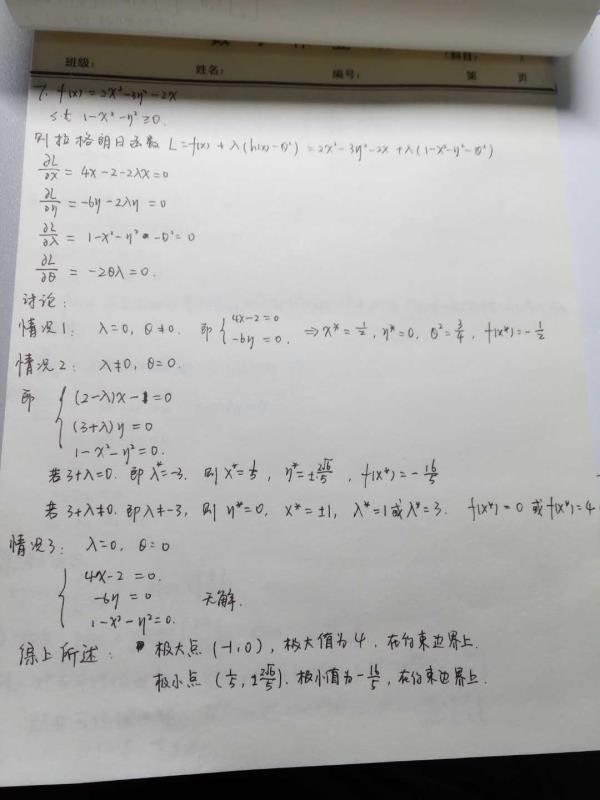 班级: 姓名: 编号: 第 页
7. f(x) = 2x²-3y²-2x
s.t 1-x²-y²≥0.
列拉格朗日函数 L=f(x)+λ(h(x)-θ²)=2x²-3y²-2x+λ(1-x²-y²-θ²)
∂L/∂x = 4x-2-2λx=0
∂L/∂y = -6y-2λy=0
∂L/∂λ = 1-x²-y²-θ²=0
∂L/∂θ = -2θλ=0.
讨论:
情况1: λ=0, θ≠0. 即 { 4x-2=0 -6y=0. ⇒ x*=1/2, y*=0, θ²=3/4, f(x*)=-1/2
情况2: λ≠0, θ=0.
即 { (2-λ)x-1=0
(3+λ)y=0
1-x²-y²=0.
若3+λ=0. 即λ*=-3. 则x*=1/5, y*=±2√6/5, f(x*)=-16/5
若3+λ≠0. 即λ≠-3, 则y*=0, x*=±1, λ*=1或λ*=3. f(x*)=0或f(x*)=4
情况3: λ=0, θ=0
{ 4x-2=0.
-6y=0 无解.
1-x²-y²=0.
综上所述: 极大点(-1,0), 极大值为4, 在约束边界上.
极小点(1/5, ±2√6/5). 极小值为-16/5, 在约束边界上.